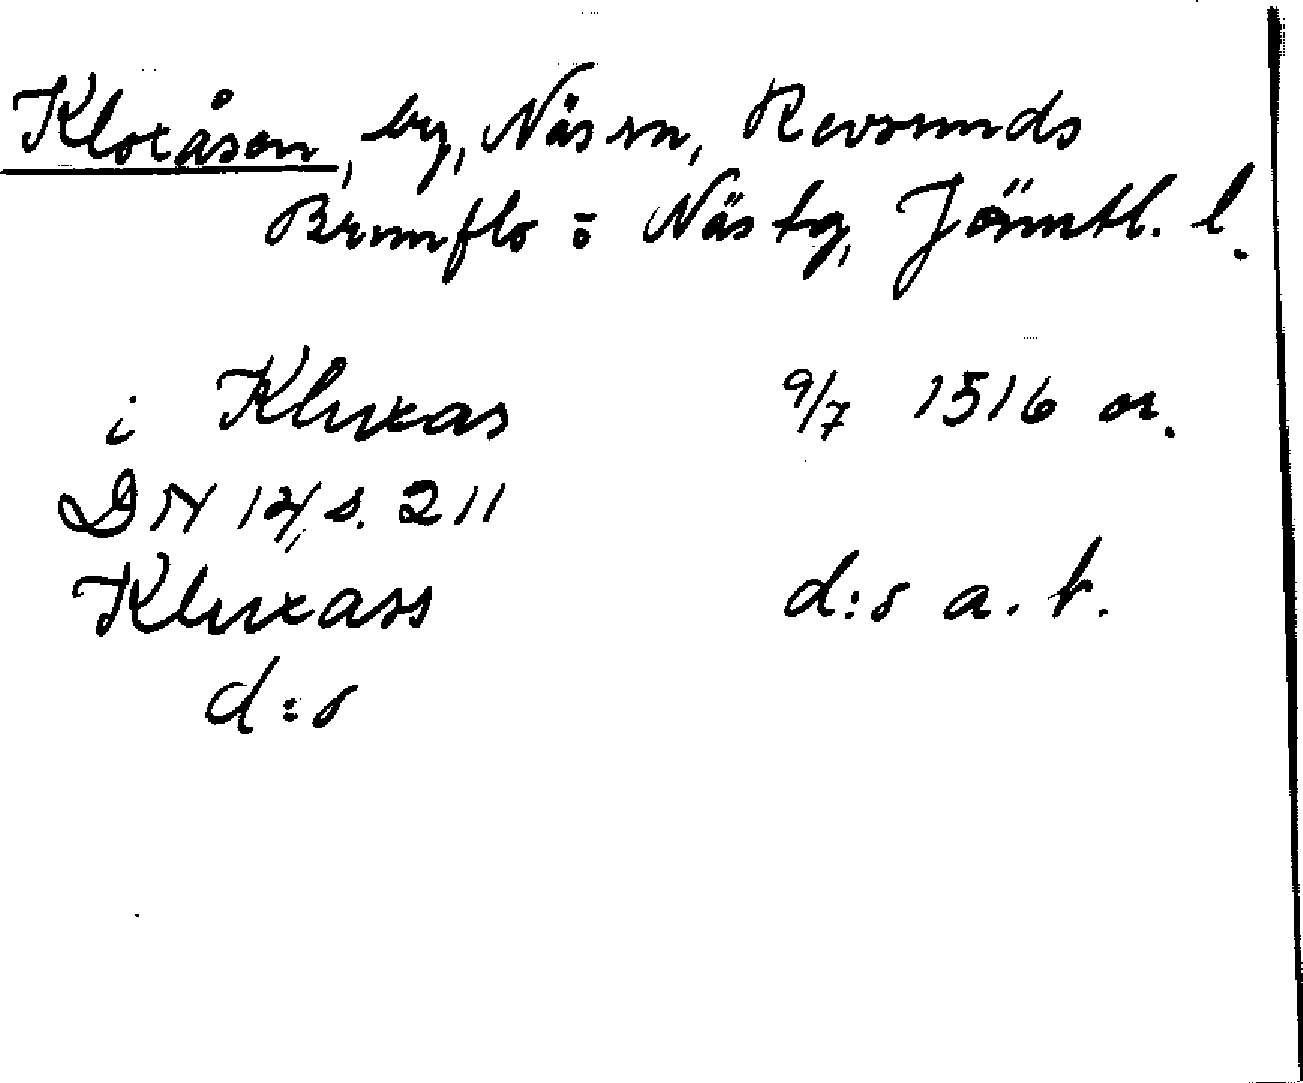 Kloxåsen, by, Näs sn, Revsunds
Brunflo o Näs tg, Jämtl. l.
i Kluxas 9/7 1516 or.
DN 14, s. 211
Kluxass d:s a.t.
d:s